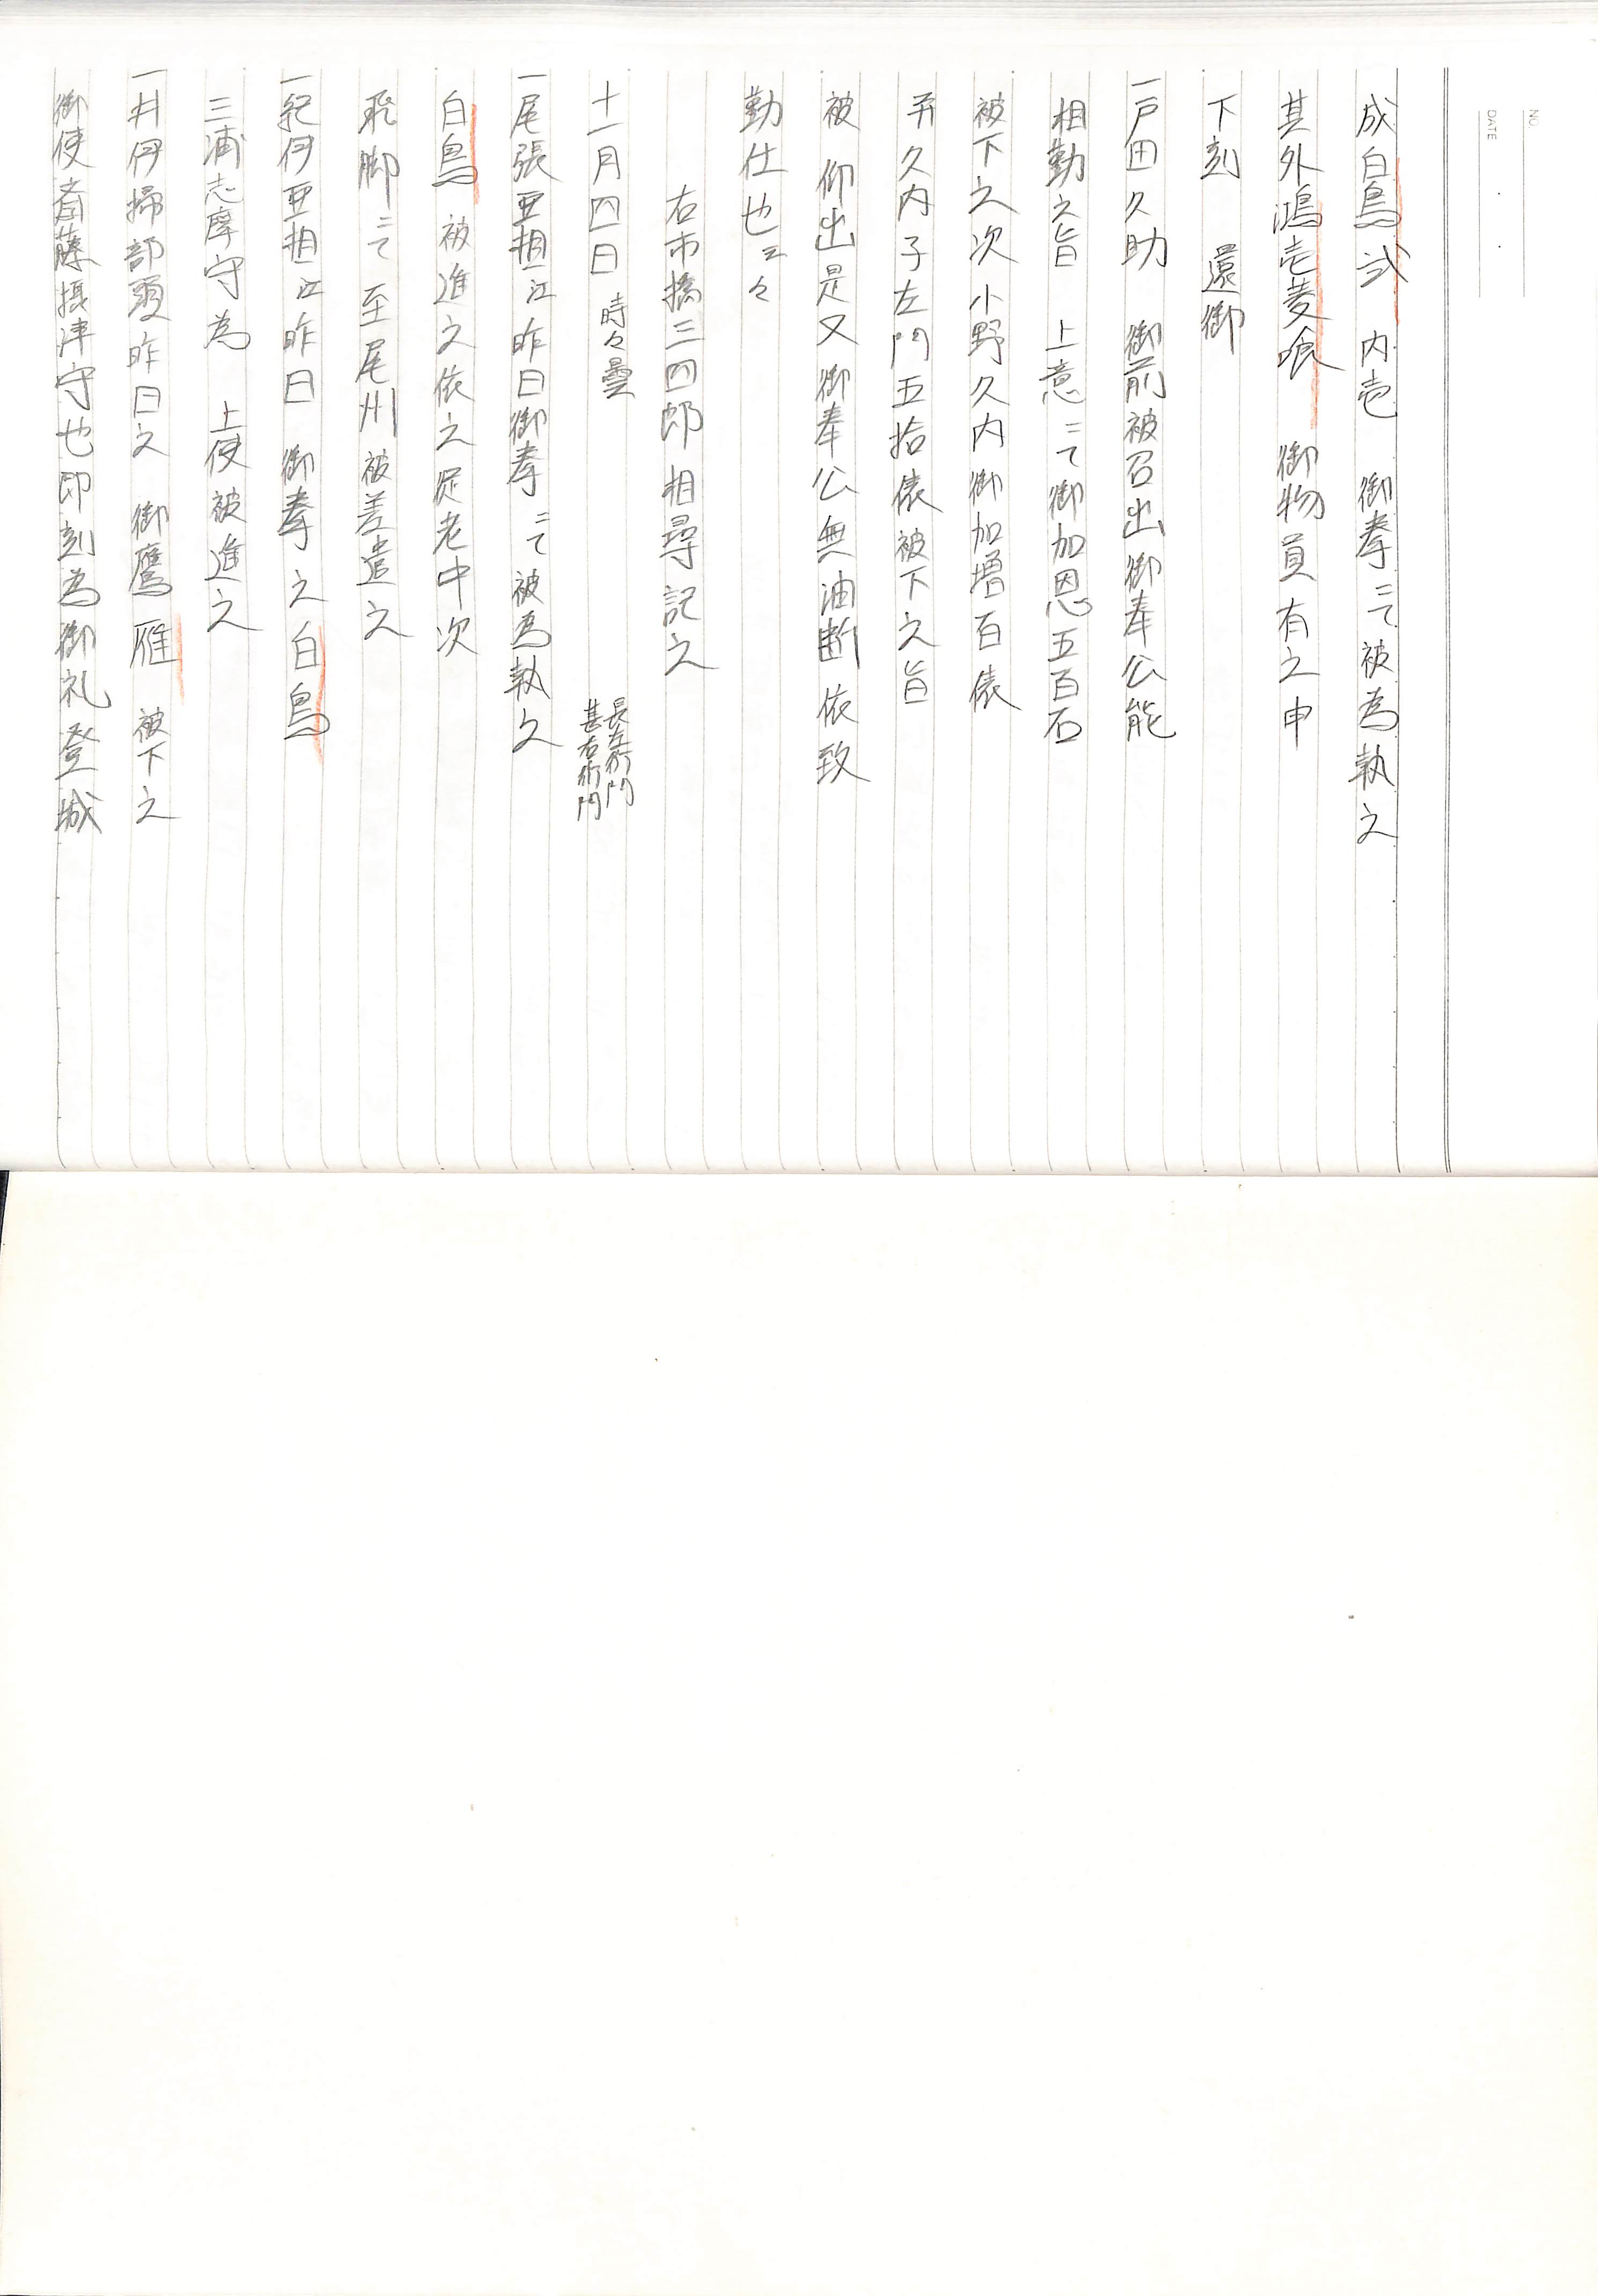 NO.
DATE
成白鳥弐　内壱　御拳ニて被為執之
其外鴻壱菱喰　御物員有之申
下刻　還御
一戸田久助　御前被召出御奉公能
相勤之旨　上意ニて御加恩五百石
被下之次小野久内御加増百俵
并久内子左門五拾俵被下之旨
被　仰出是又御奉公無油断依致
勤仕也云々
右市橋三四郎相尋記之
十一月四日　時々曇　長左衛門　甚右衛門
一尾張亜相江昨日御拳ニて被為執之
白鳥　被進之依之従老中次
飛脚ニて至尾州被差遣之
一紀伊亜相江昨日　御拳之白鳥
三浦志摩守為　上使被進之
一井伊掃部頭昨日之　御鷹雁　被下之
御使斎藤摂津守也即刻為御礼登城